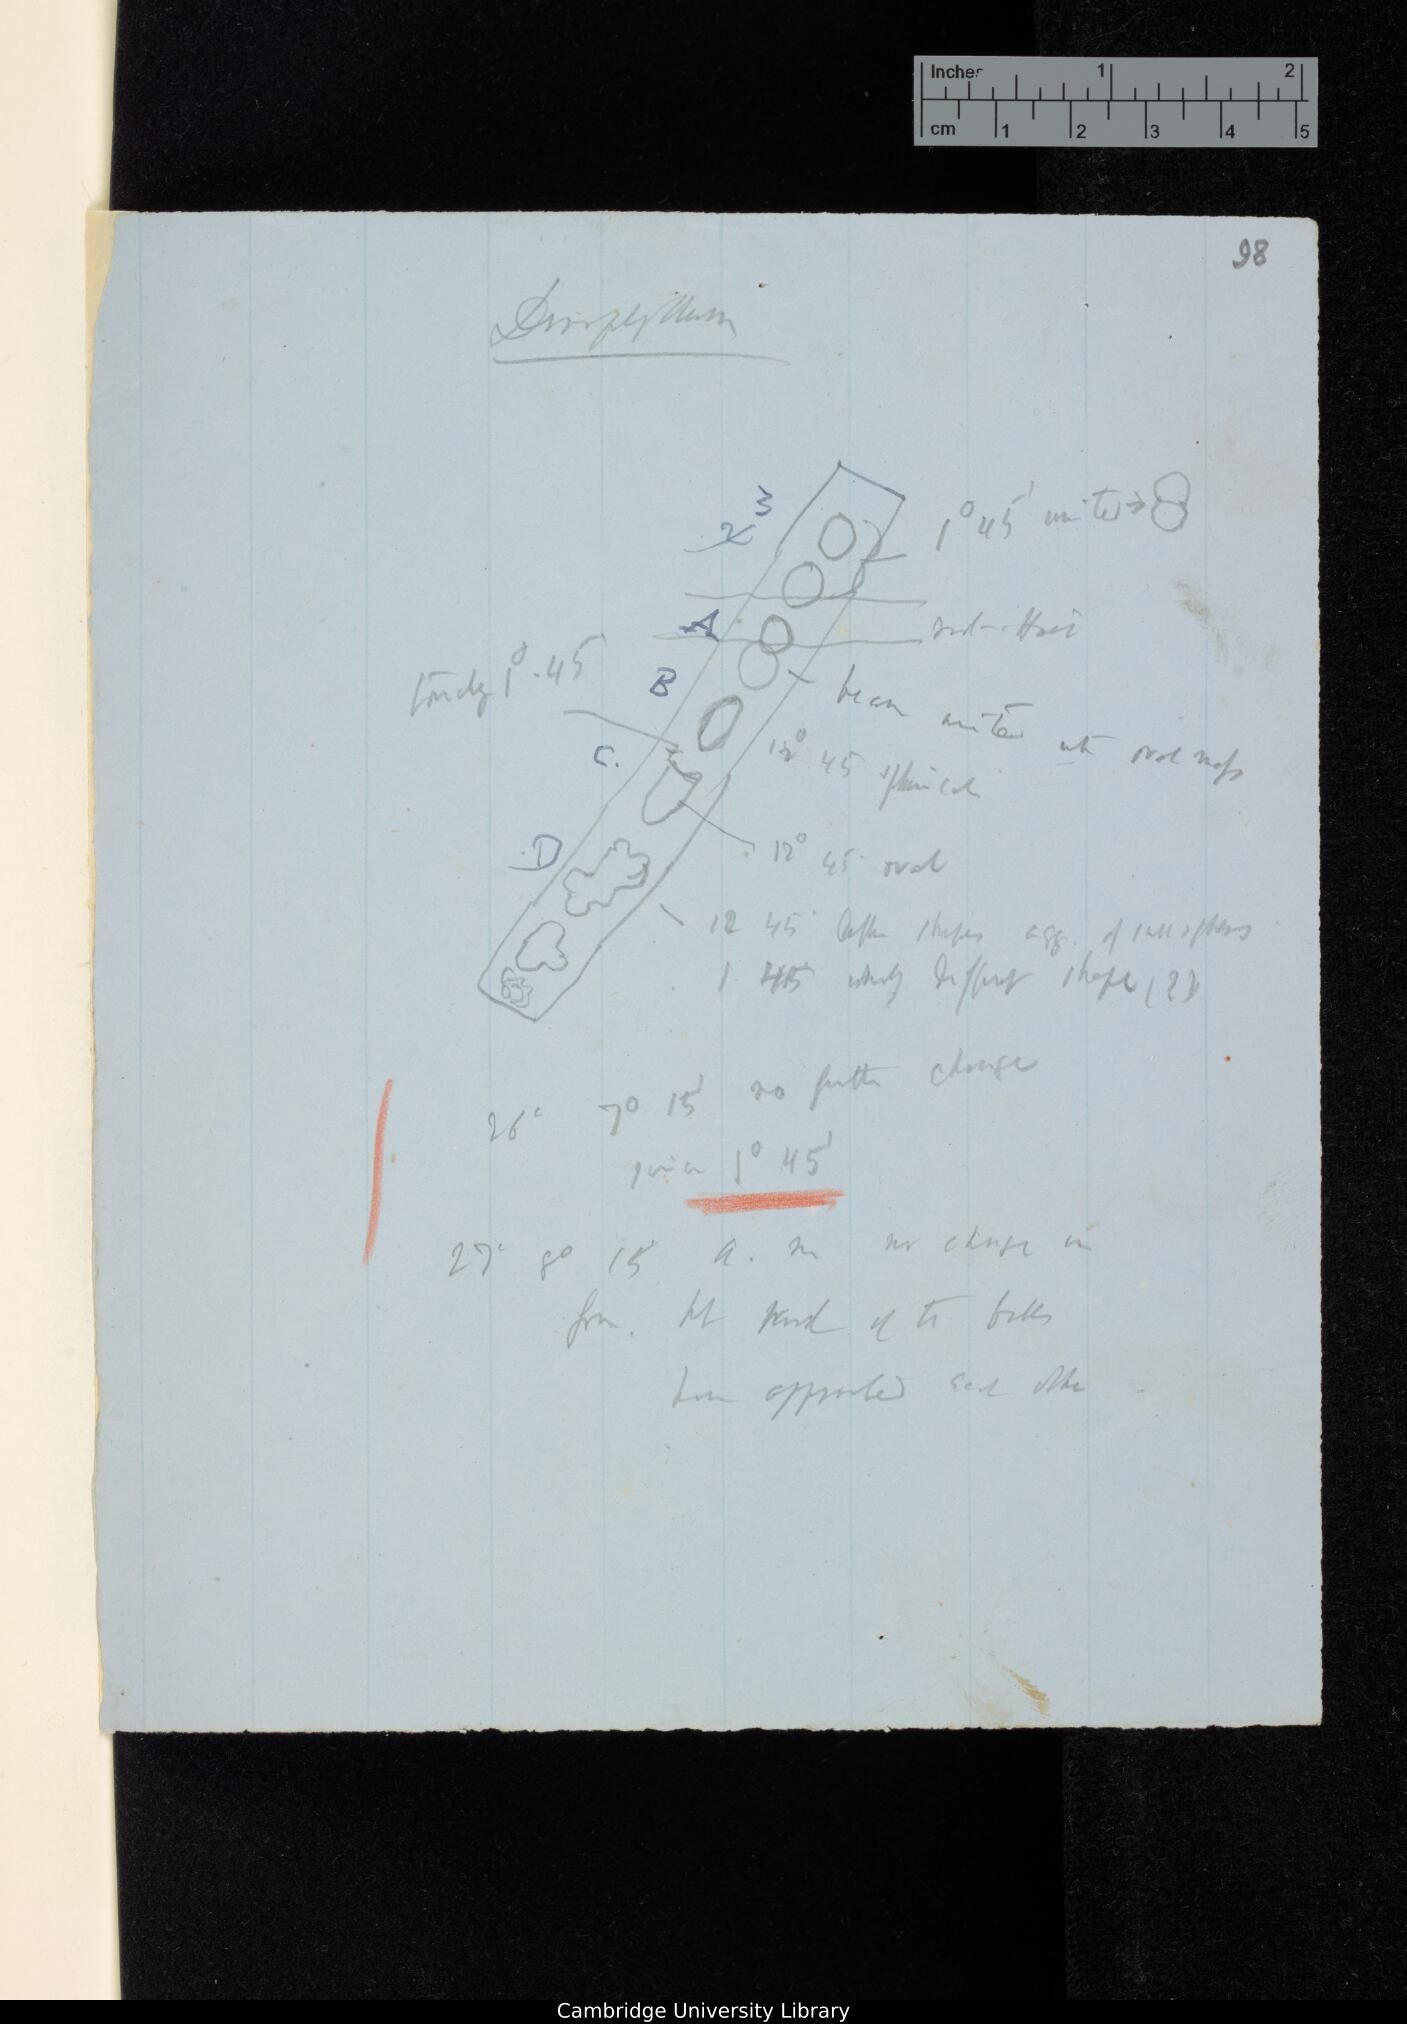 Inches 1 2
cm 1 2 3 4 5
98
Drosophyllum
3
1° 45' united →
A
1° 45
B
became united into oval mass
12° 45 spherical
C.
12° 45 oval
D
12 45 shapes agg. of small spheres
1. 45 wholly different shape (2)
26' 7° 15' no further change
since 1° 45'
27' 8° 15' a.m no change in
form. but some of the balls
have approached each other
Cambridge University Library